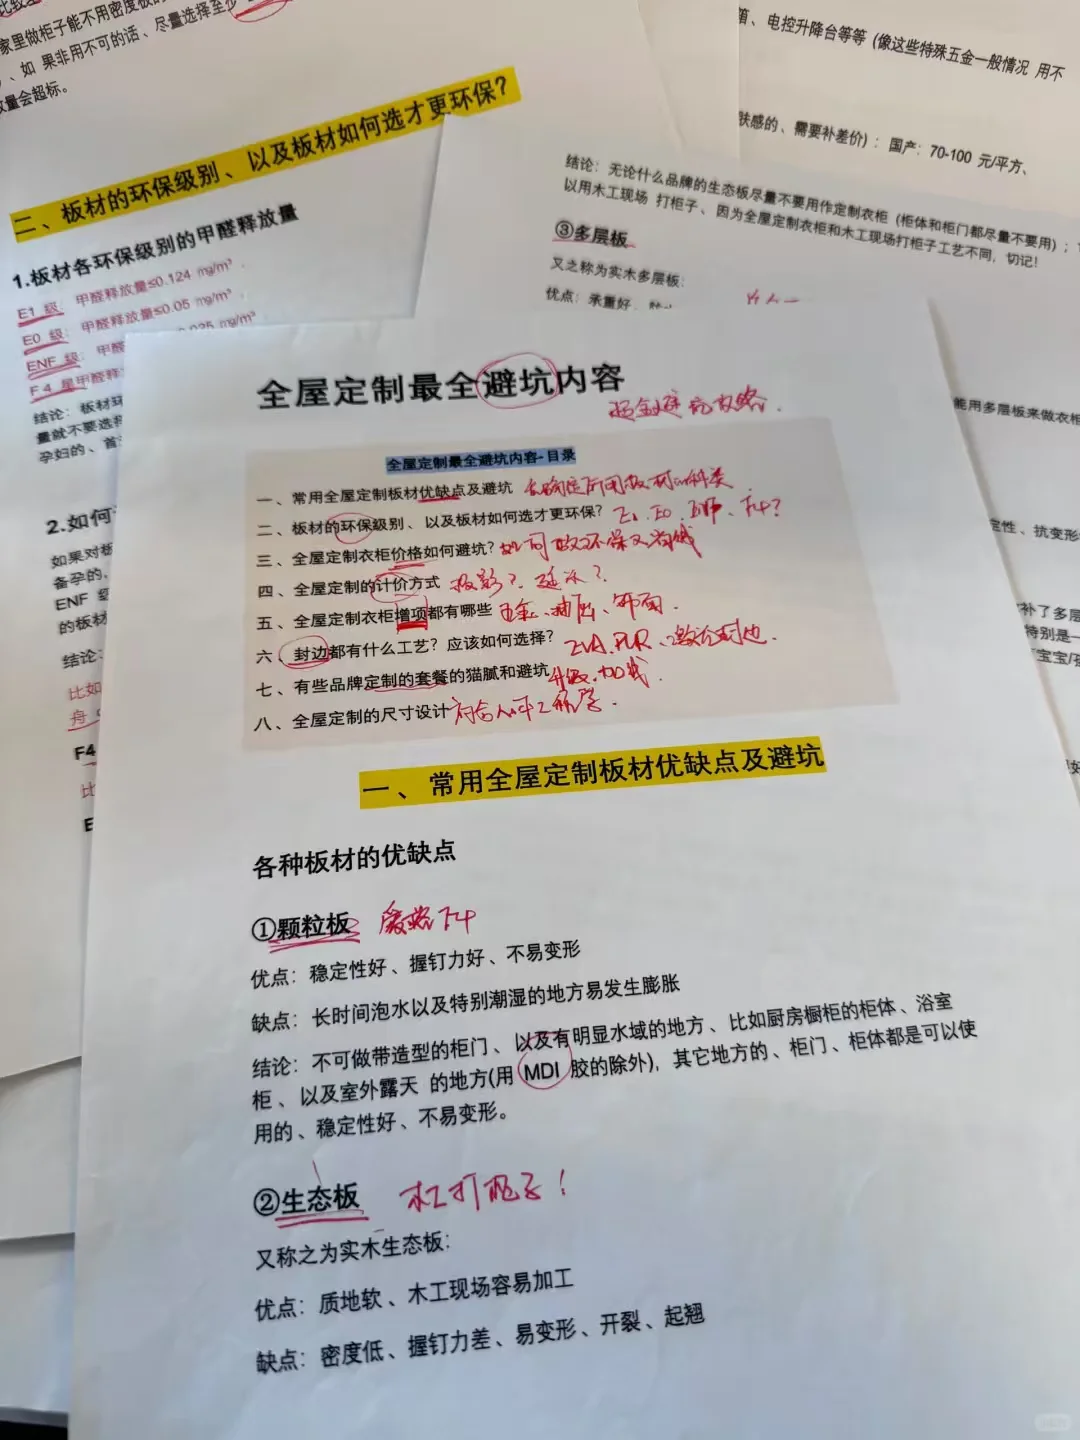 家里做柜子能不用密度板的
、如 果非用不可的话、尽量选择至少
放量会超标。
二、板材的环保级别、以及板材如何选才更环保?
1.板材各环保级别的甲醛释放量
E1 级：甲醛释放量≤0.124 mg/m³、
E0 级：甲醛释放量≤0.05 mg/m³、
ENF 级：甲醛 0.025 mg/m³、
F 4 星甲醛释
结论：板材环
量就不要选择
孕妇的、首
2.如何
如果对板
备孕的、
ENF 级
的板材
结论：
比如
舟
F4
比
E
、电控升降台等等 (像这些特殊五金一般情况 用不
肤感的、需要补差价)；国产：70-100 元/平方、
结论：无论什么品牌的生态板尽量不要用作定制衣柜 (柜体和柜门都尽量不要用)；
以用木工现场 打柜子、因为全屋定制衣柜和木工现场打柜子工艺不同，切记!
③多层板
又之称为实木多层板：
优点：承重好、
能用多层板来做衣柜
定性、抗变形
补了多层
特别是一
宝宝/孩
全屋定制最全避坑内容
超全避坑攻略.
全屋定制最全避坑内容-目录
一、常用全屋定制板材优缺点及避坑 去确定所用板材的种类
二、板材的环保级别、以及板材如何选才更环保? E1、E0、ENF、F4?
三、全屋定制衣柜价格如何避坑? 如何做环保又省钱
四、全屋定制的计价方式 投影? 延米?
五、全屋定制衣柜增项都有哪些 五金、抽屉、饰面.
六、封边都有什么工艺? 应该如何选择? EVA、PUR、激光封边.
七、有些品牌定制的套餐的猫腻和避坑 升级.加钱.
八、全屋定制的尺寸设计 符合人体工程学.
一、常用全屋定制板材优缺点及避坑
各种板材的优缺点
①颗粒板 F4
优点：稳定性好、握钉力好、不易变形
缺点：长时间泡水以及特别潮湿的地方易发生膨胀
结论：不可做带造型的柜门、以及有明显水域的地方、比如厨房橱柜的柜体、浴室
柜、以及室外露天 的地方(用 MDI 胶的除外)，其它地方的、柜门、柜体都是可以使
用的、稳定性好、不易变形。
②生态板 木工打柜子!
又称之为实木生态板：
优点：质地软、木工现场容易加工
缺点：密度低、握钉力差、易变形、开裂、起翘